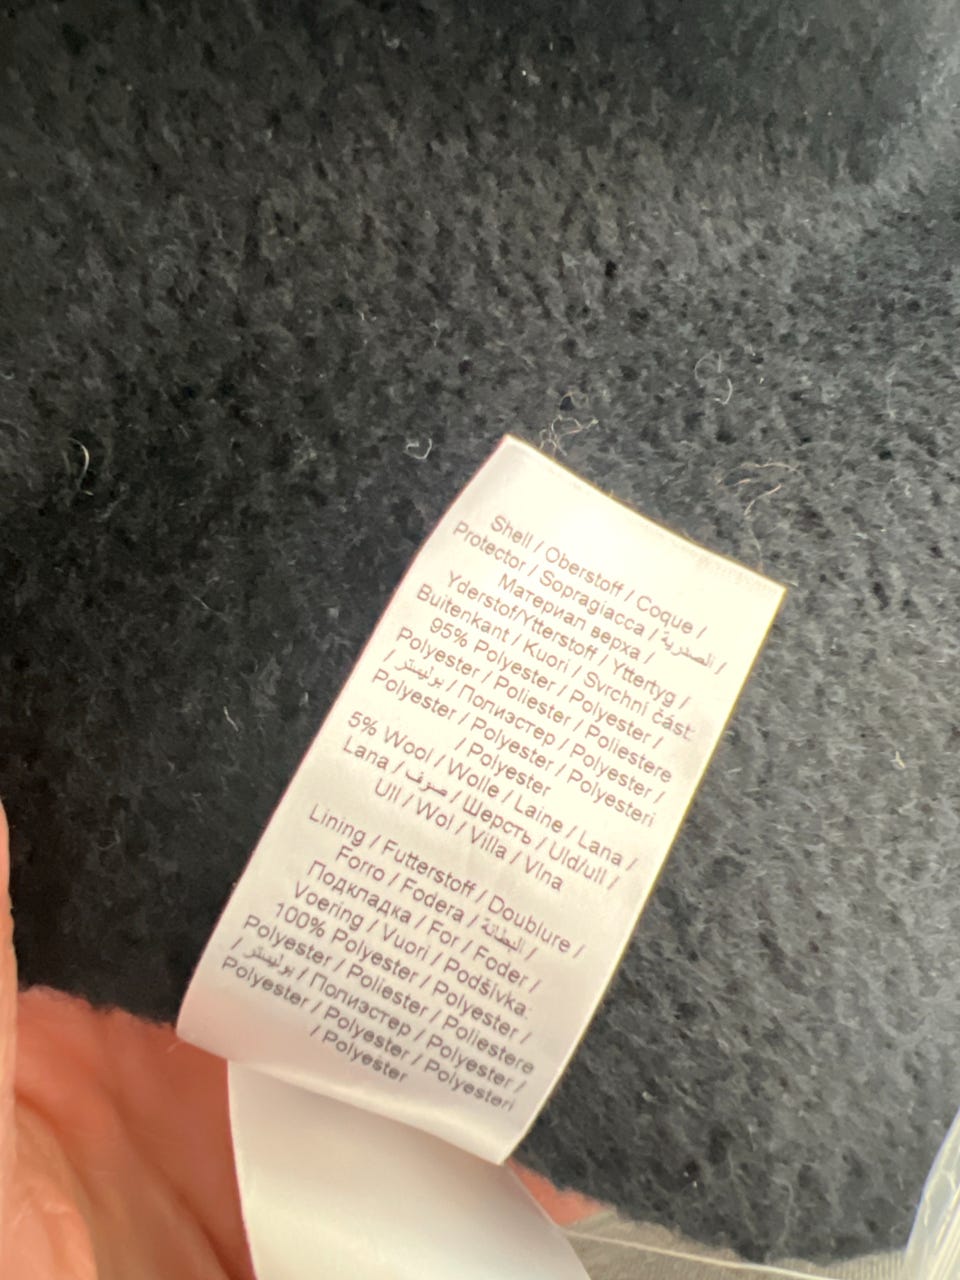 Shell / Oberstoff / Coque /
Protector / Sopragiacca / الصدرية /
Материал верха /
Yderstof/Ytterstoff / Yttertyg /
Buitenkant / Kuori / Svrchní část:
95% Polyester / Polyester /
Polyester / Poliester / Poliestere
/ بوليستر / Полиэстер / Polyester /
Polyester / Polyester / Polyesteri
/ Polyester
5% Wool / Wolle / Laine / Lana /
Lana / صوف / Шерсть / Uld/ull /
Ull / Wol / Villa / Vlna
Lining / Futterstoff / Doublure /
Forro / Fodera / البطانة /
Подкладка / For / Foder /
Voering / Vuori / Podšívka:
100% Polyester / Polyester /
Polyester / Poliester / Poliestere
/ بوليستر / Полиэстер / Polyester /
Polyester / Polyester / Polyesteri
/ Polyester